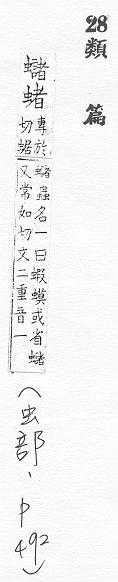 28 類篇
蠩蝫 專於切蟾
蠩蟲名一曰蝦蟆或省蠩
又常如切文二重音一
(虫部、p492)